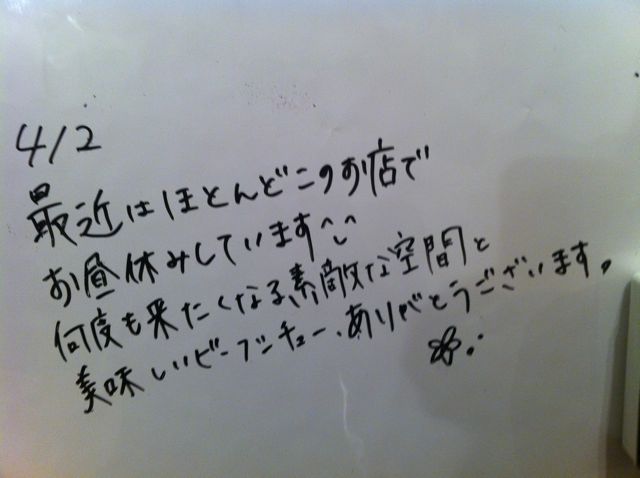 4/2
最近はほとんどこのお店で
お昼休みしています^^
何度も来たくなる素敵な空間と
美味しいビーフシチュー、ありがとうございます。